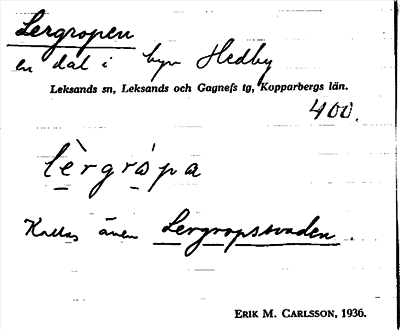 Lergropen
en dal i byn Hedby
Leksands sn, Leksands och Gagnefs tg, Kopparbergs län.
400.
lèrgrópa
Kallas även Lergropssvaden.
ERIK M. CARLSSON, 1936.